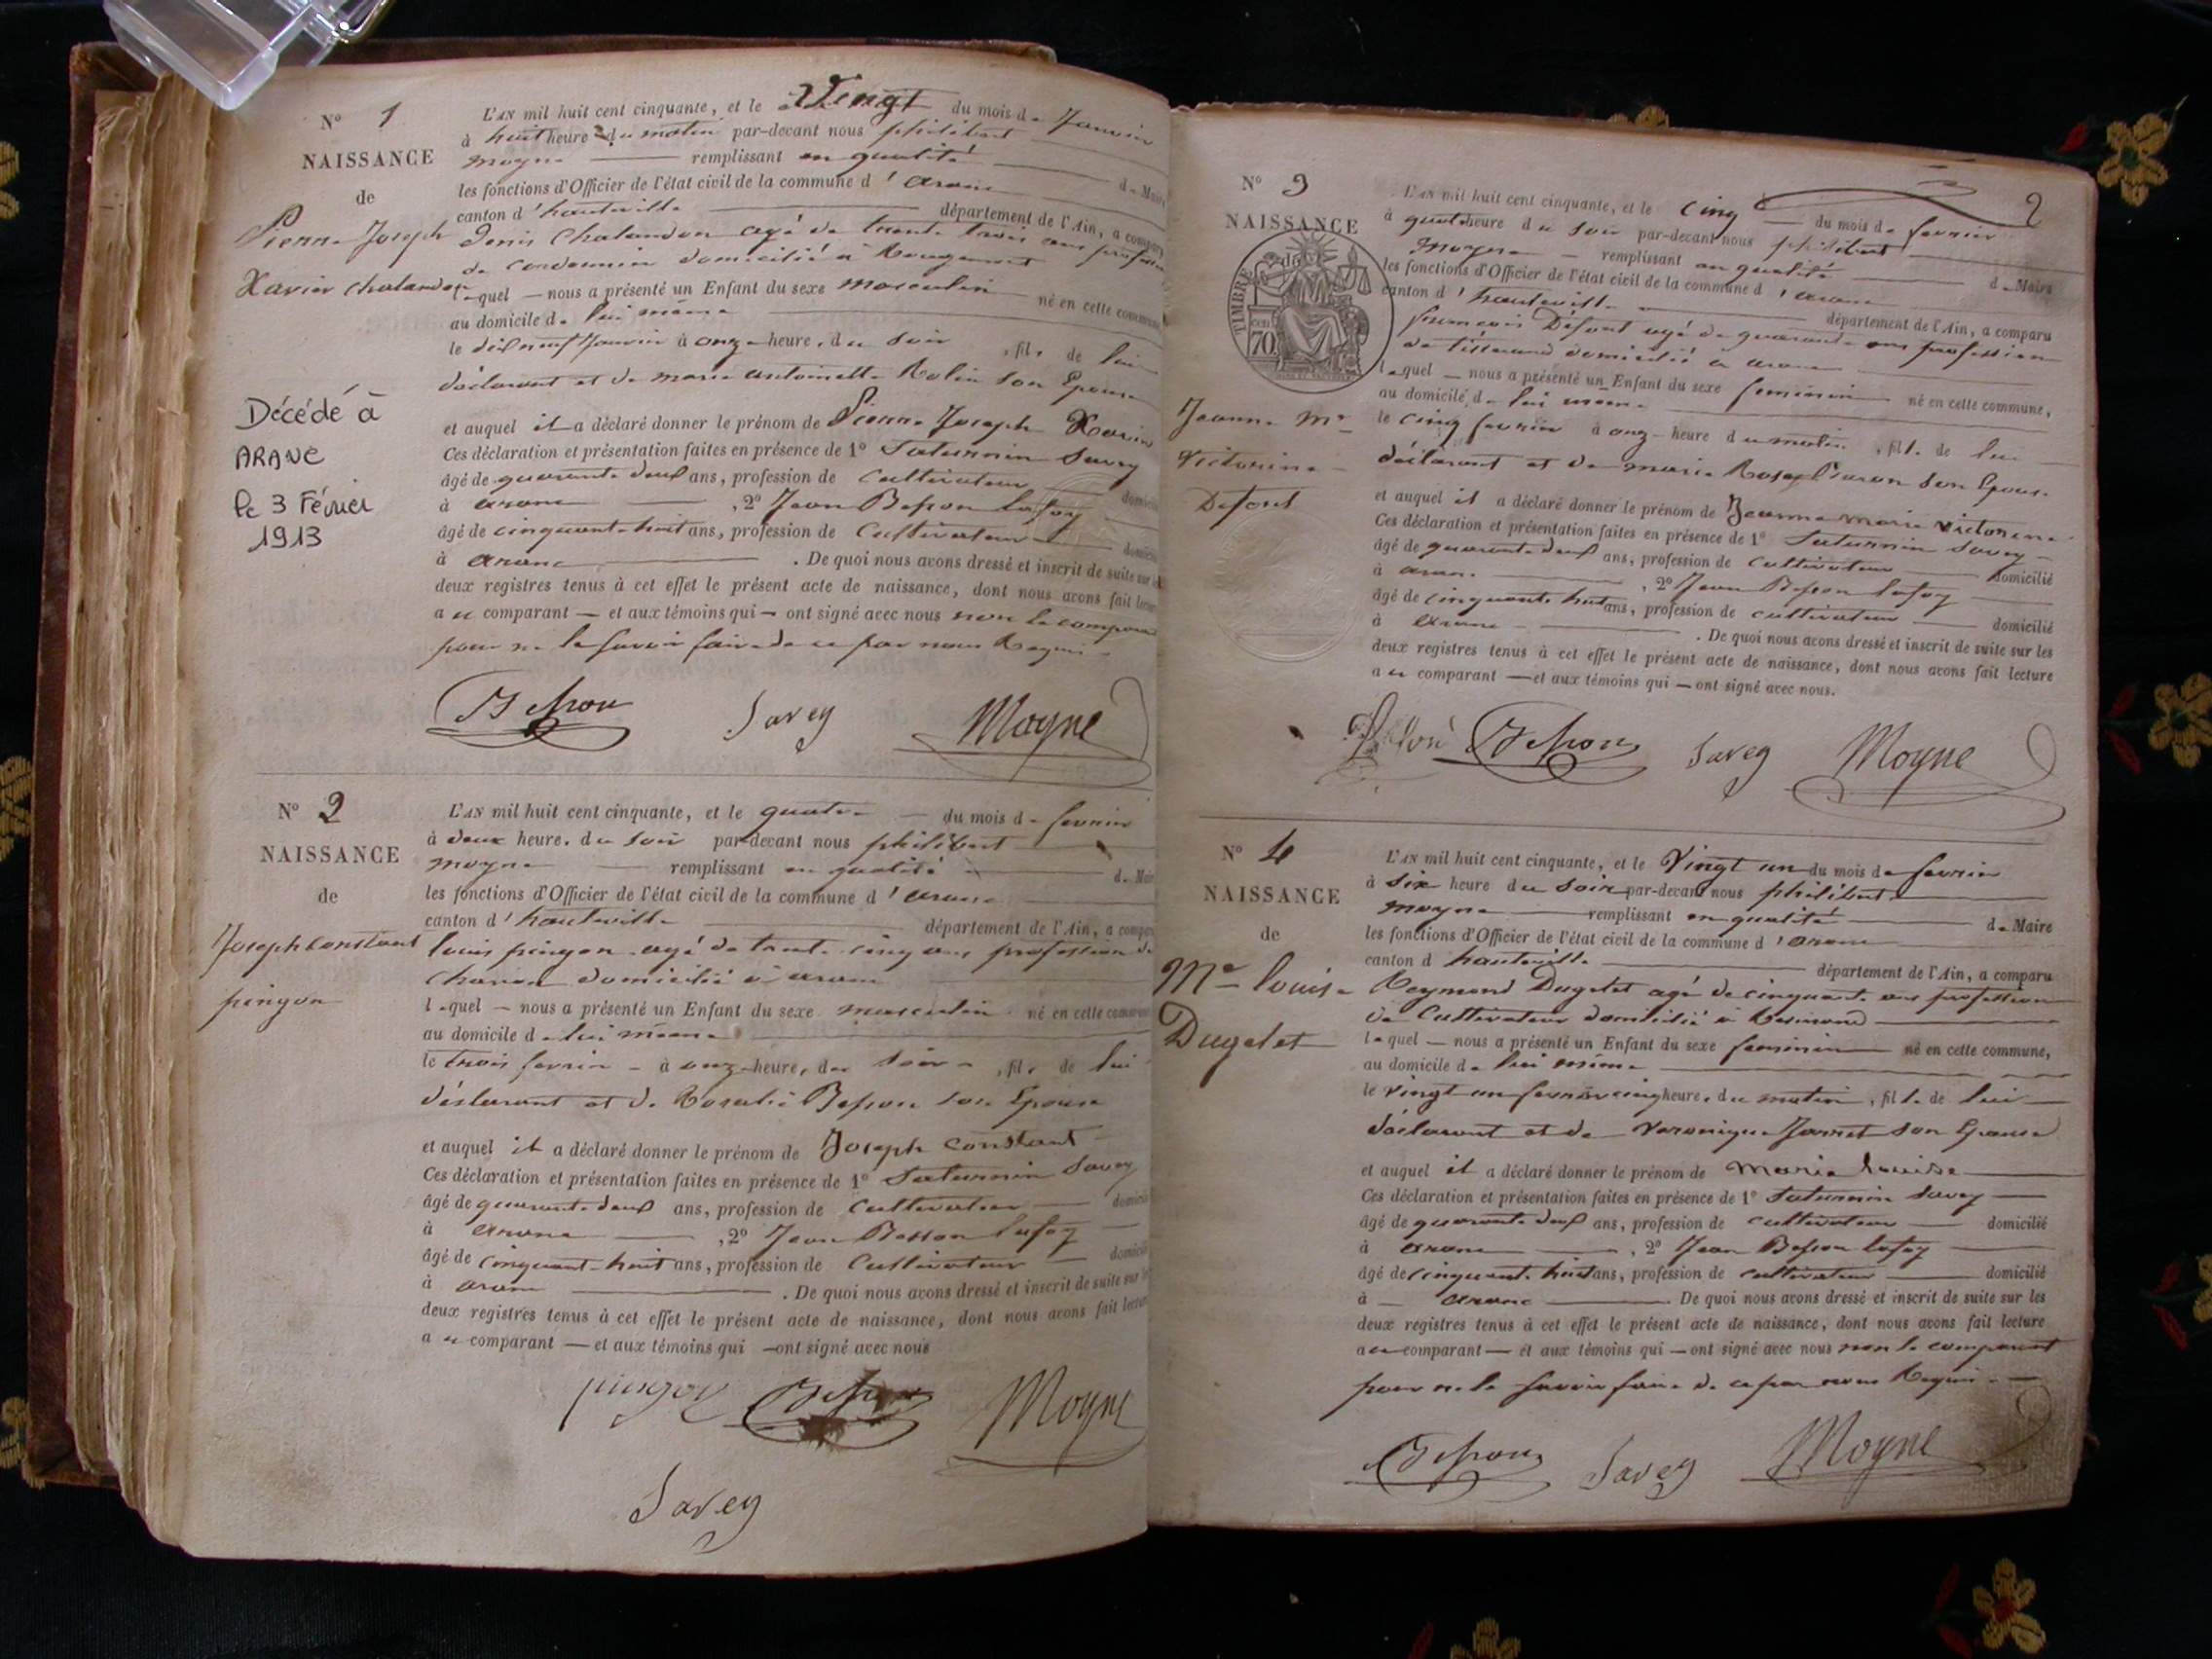 N° 1
NAISSANCE
de
Pierre Joseph
Xavier Chalandon
Décédé à
ARANC
le 3 Février
1913
L'AN mil huit cent cinquante, et le Vingt du mois de Janvier
à huit heures du matin par-devant nous philibert
moyne remplissant en qualité
les fonctions d'Officier de l'état civil de la commune d'aranc de Maire
canton d'hauteville département de l'Ain, a comparu
denis Chalandon agé de trente trois ans profession
de cordonnier domicilié à Rougemont
lequel — nous a présenté un Enfant du sexe masculin né en cette commune
au domicile de lui même
le dixneuf Janvier à onze heures du soir, fils de lui
déclarant et de marie antoinette Rolin son Epouse
et auquel il a déclaré donner le prénom de Pierre Joseph Xavier
Ces déclaration et présentation faites en présence de 1° Saturnin Savey
âgé de quarante deux ans, profession de Cultivateur
à aranc, 2° Jean Besson lafoy
âgé de cinquante huit ans, profession de Cultivateur
à aranc. De quoi nous avons dressé et inscrit de suite sur les
deux registres tenus à cet effet le présent acte de naissance, dont nous avons fait lecture
au comparant — et aux témoins qui — ont signé avec nous non le comparant
pour ne le savoir faire de ce par nous Requis
Besson Savey Moyne
N° 2
NAISSANCE
de
Joseph Constant
pingon
L'AN mil huit cent cinquante, et le quatre — du mois de fevrier
à deux heures du soir par-devant nous philibert
moyne remplissant en qualité de Maire
les fonctions d'Officier de l'état civil de la commune d'aranc
canton d'hauteville département de l'Ain, a comparu
louis pingon agé de trente cinq ans profession de
charon domicilié à aranc
lequel — nous a présenté un Enfant du sexe masculin né en cette commune
au domicile de lui même
le trois fevrier à onze heures du soir, fils de lui
déclarant et de Rosalie Besson son Epouse
et auquel il a déclaré donner le prénom de Joseph Constant
Ces déclaration et présentation faites en présence de 1° Saturnin Savey
âgé de quarante deux ans, profession de Cultivateur
à aranc, 2° Jean Besson lafoy
âgé de cinquante huit ans, profession de Cultivateur
à aranc. De quoi nous avons dressé et inscrit de suite sur les
deux registres tenus à cet effet le présent acte de naissance, dont nous avons fait lecture
au comparant — et aux témoins qui — ont signé avec nous
pingon Besson Moyne
Savey
2
N° 3
NAISSANCE
TIMBRE
70
Jeanne Mie
Victorine
Defont
L'AN mil huit cent cinquante, et le cinq — du mois de fevrier
à quatre heure du soir par-devant nous philibert
moyne — remplissant en qualité
les fonctions d'Officier de l'état civil de la commune d'aranc de Maire
canton d'hauteville département de l'Ain, a comparu
francois Défont agé de quarante ans profession
de tisserand domicilié à aranc
lequel — nous a présenté un Enfant du sexe feminin né en cette commune,
au domicile de lui meme
le cinq fevrier à onze heure du matin, fille de lui
déclarant et de marie Rose son Epouse
et auquel il a déclaré donner le prénom de Jeanne marie victorine
Ces déclaration et présentation faites en présence de 1° Saturnin Savey
âgé de quarante deux ans, profession de Cultivateur domicilié
à aranc, 2° Jean Besson lafoy
âgé de cinquante huit ans, profession de cultivateur domicilié
à aranc. De quoi nous avons dressé et inscrit de suite sur les
deux registres tenus à cet effet le présent acte de naissance, dont nous avons fait lecture
au comparant — et aux témoins qui — ont signé avec nous.
Besson Savey Moyne
N° 4
NAISSANCE
de
Mie louise
Dugelet
L'AN mil huit cent cinquante, et le Vingt un du mois de fevrier
à six heure du soir par-devant nous philibert
moyne remplissant en qualité de Maire
les fonctions d'Officier de l'état civil de la commune d'aranc
canton d hauteville département de l'Ain, a comparu
Reymond Dugelet agé de cinquante ans profession
de Cultivateur domicilié à Resinand
lequel — nous a présenté un Enfant du sexe feminin né en cette commune,
au domicile de lui même
le vingt un fevrier à cinq heures du matin, fille de lui
déclarant et de Veronique Jarnet son Epouse
et auquel il a déclaré donner le prénom de marie louise
Ces déclaration et présentation faites en présence de 1° Saturnin Savey
âgé de quarante deux ans, profession de cultivateur domicilié
à aranc, 2° Jean Besson lafoy
âgé de cinquante huit ans, profession de cultivateur domicilié
à — aranc. De quoi nous avons dressé et inscrit de suite sur les
deux registres tenus à cet effet le présent acte de naissance, dont nous avons fait lecture
au comparant — et aux témoins qui — ont signé avec nous non le comparant
pour ne le savoir faire de ce par nous Requis
Besson Savey Moyne